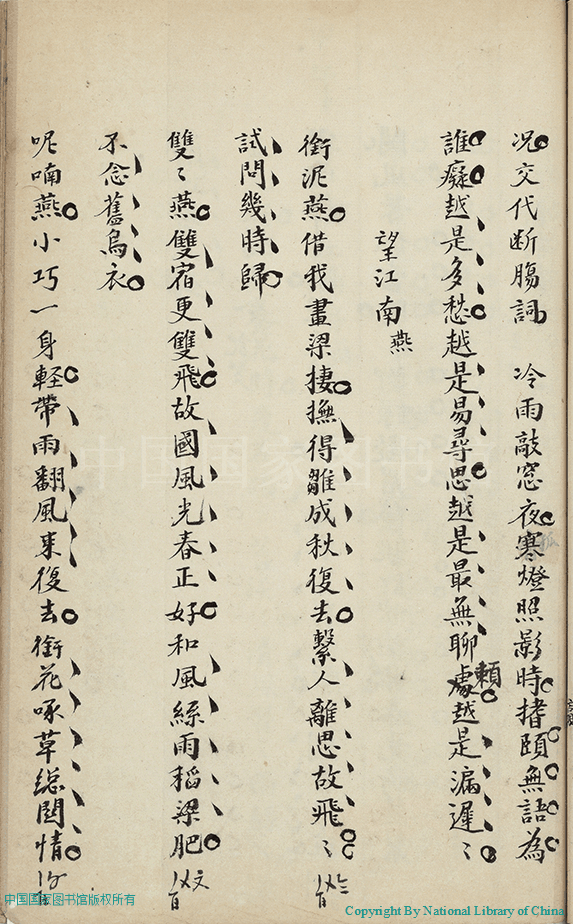 况交代断腸詞　冷雨敲窓夜寒燈照影時搘頤無語為
誰癡越是多愁越是易尋思越是最無聊處賴越是漏遲〻
望江南燕
銜泥燕借我畫梁捿撫得雛成秋復去繫人離思故飛〻
試問幾時歸
雙〻燕雙宿更雙飛故國風光春正好和風絲雨稻粱肥
不念舊烏衣
呢喃燕小巧一身軽帶雨翻風来復去銜花啄草總関情
中国国家图书馆
中国国家图书馆版权所有
Copyright By National Library of China